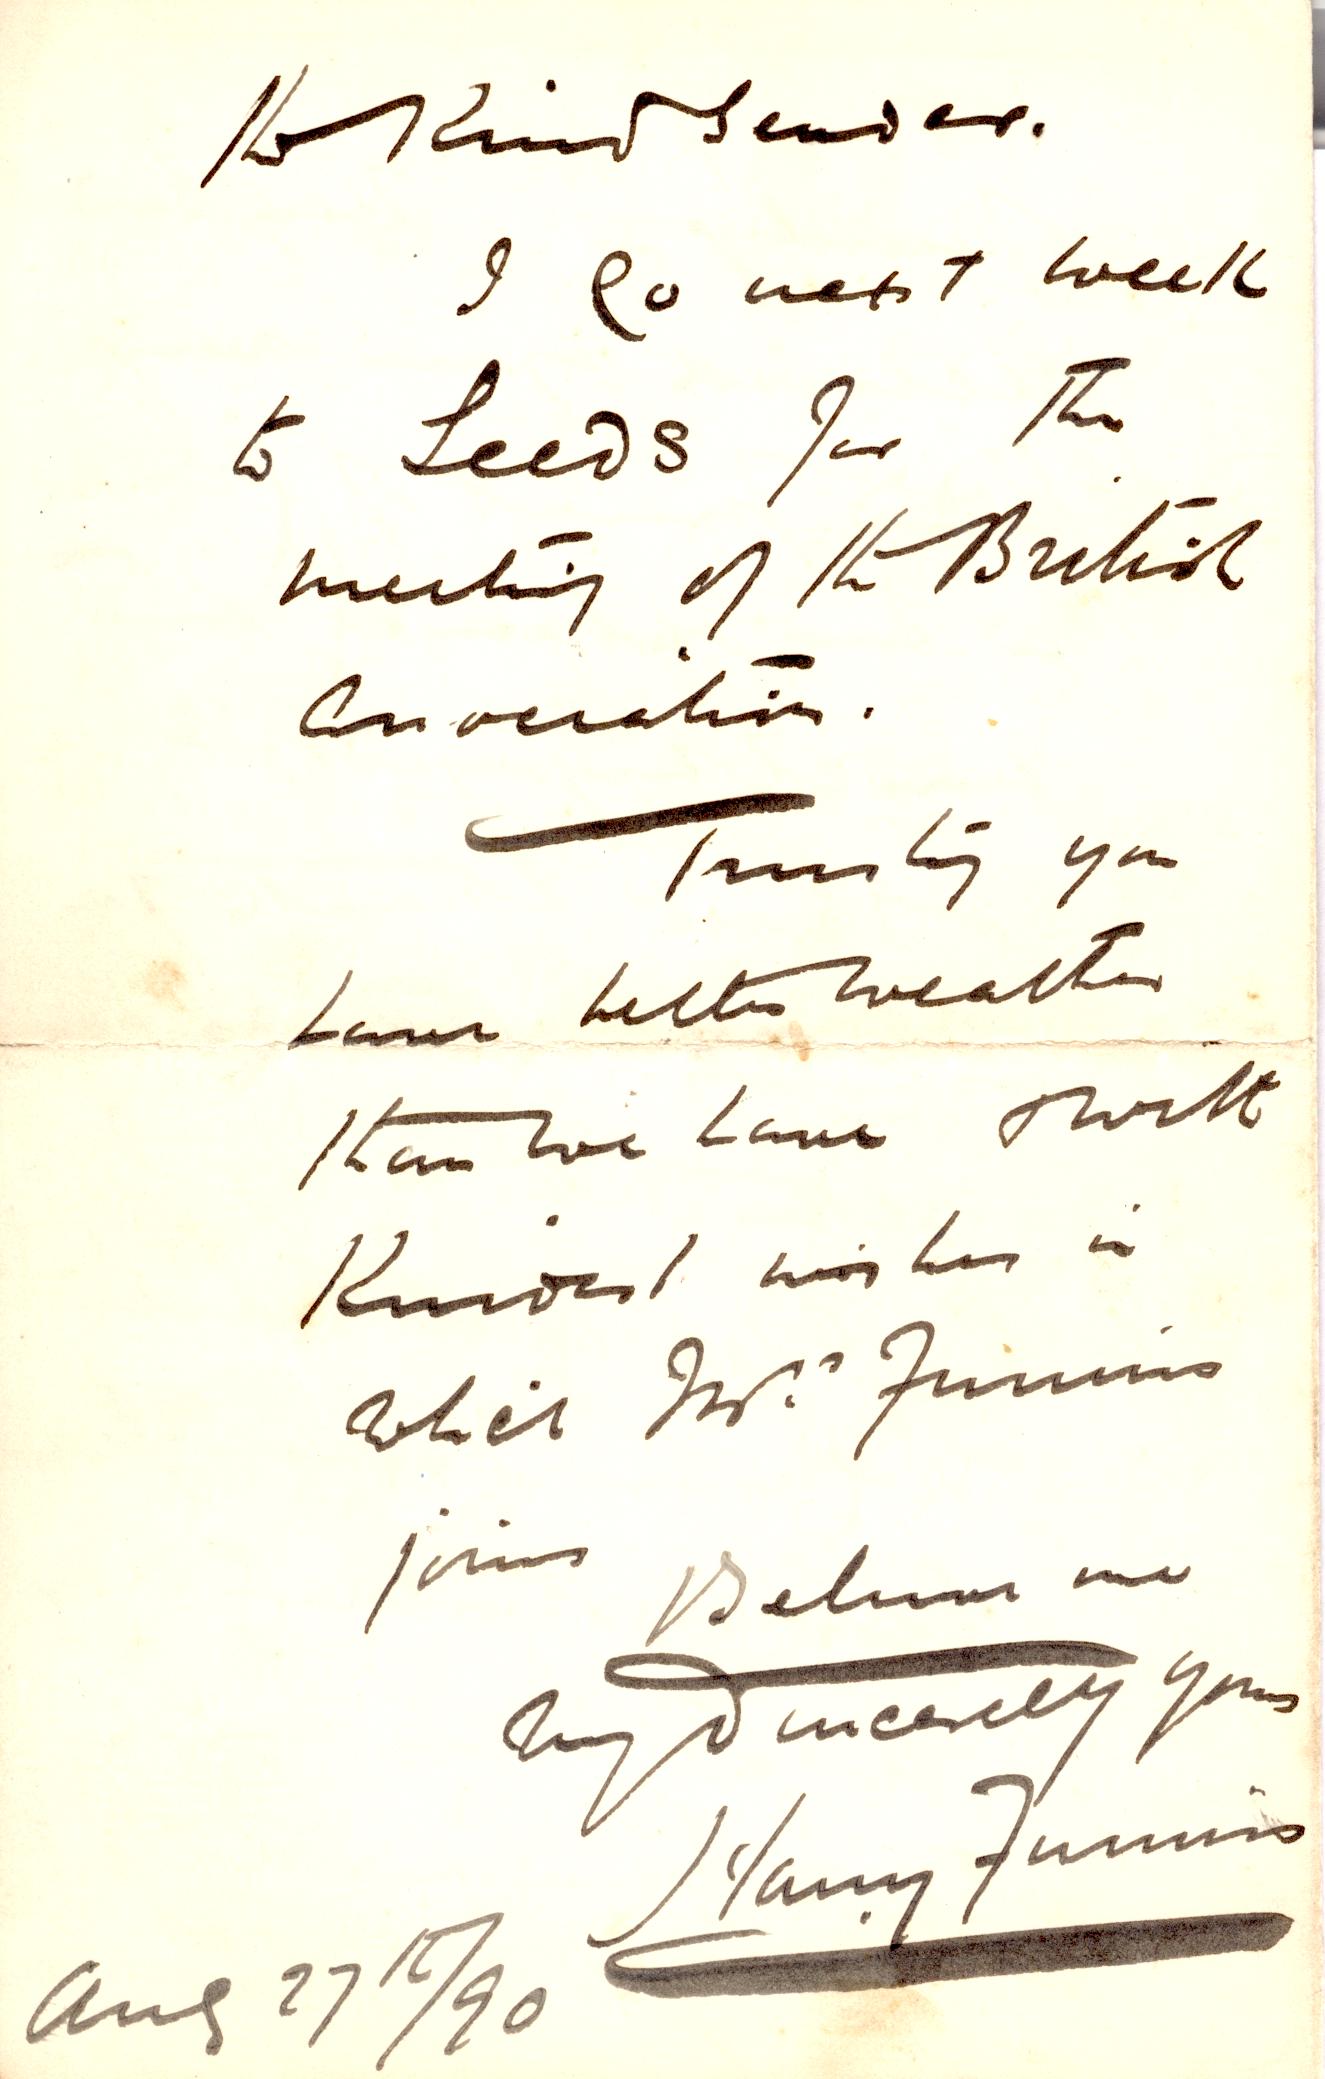 the Kind Sender.
I go next week
to Leeds for the
meeting of the British
Association.
Trusting you
have better weather
than we have & with
Kindest wishes in
which Mrs. Furniss
joins
Believe me
Very Sincerely yours
Harry Furniss
Aug 27th/90